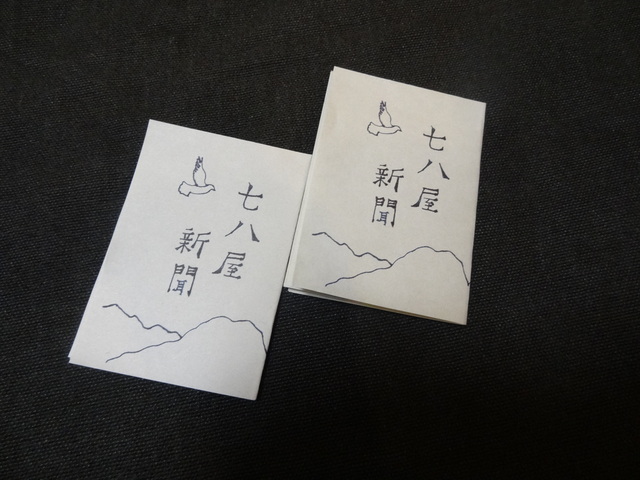 七八屋
新聞
七八屋
新聞